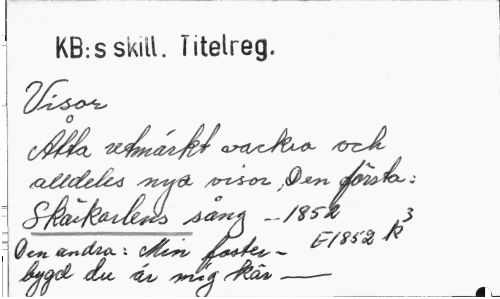 KB:s skill. Titelreg.
Visor
Åtta utmärkt vackra och
alldeles nya visor, Den första:
Skärkarlens sång -- 1852
E1852 k3
Den andra: Min foster-
bygd du är mig kär —